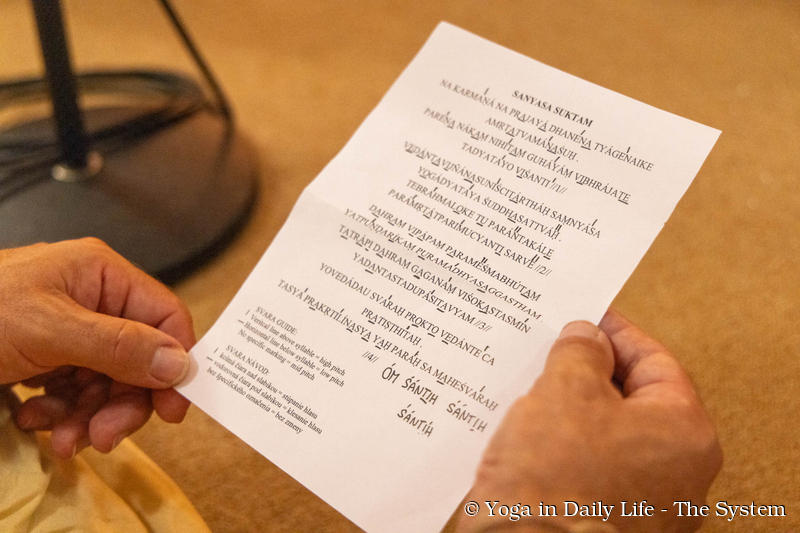 SANYASA SUKTAM
NA KARMANÁ NA PRAJAYÁ DHANÉNA TYÁGENAIKE
AMRTATVAMÁNASUH.
PARÉNA NÁKAM NIHITAM GUHÁYÁM VIBHRÁJATE
TADYATAYO VIŚANTI //1//
VEDÁNTAVIJŇÁNASUNIŚCITÁRTHÁH SAMNYÁSA
YOGÁDYATAYA ŚUDDHASATTVÁH.
TEBRÁHMALOKE TU PARÁNTAKÁLE
PARÁMRTÁTPARIMUCYANTI SARVE //2//
DAHRAM VIPÁPAM PARAMEŚMABHUTAM
YATPUNDARÍKAM PURAMADHYASAGGASTHAM
TATRÁPI DAHRAM GAGANAM VIŚOKASTASMÍN
YADANTASTADUPÁSITAVYAM //3//
YOVEDÁDAU SVÁRAH PROKTO VEDÁNTE CA
PRATISTHITAH.
TASYÁ PRAKRTILÍNASYA YAH PARÁH SA MAHEŚVÁRAH
//4//
ÓM ŚÁNTIH ŚÁNTIH
ŚÁNTIH
SVARA GUIDE:
Vertical line above syllable = high pitch
Horizontal line below syllable = low pitch
No specific marking = mid pitch
SVARA NÁVOD:
kolmá čiara nad slabikou = stúpanie hlasu
vodorovná čiara pod slabikou = klesanie hlasu
bez špecifického označenia = bez zmeny
© Yoga in Daily Life - The System